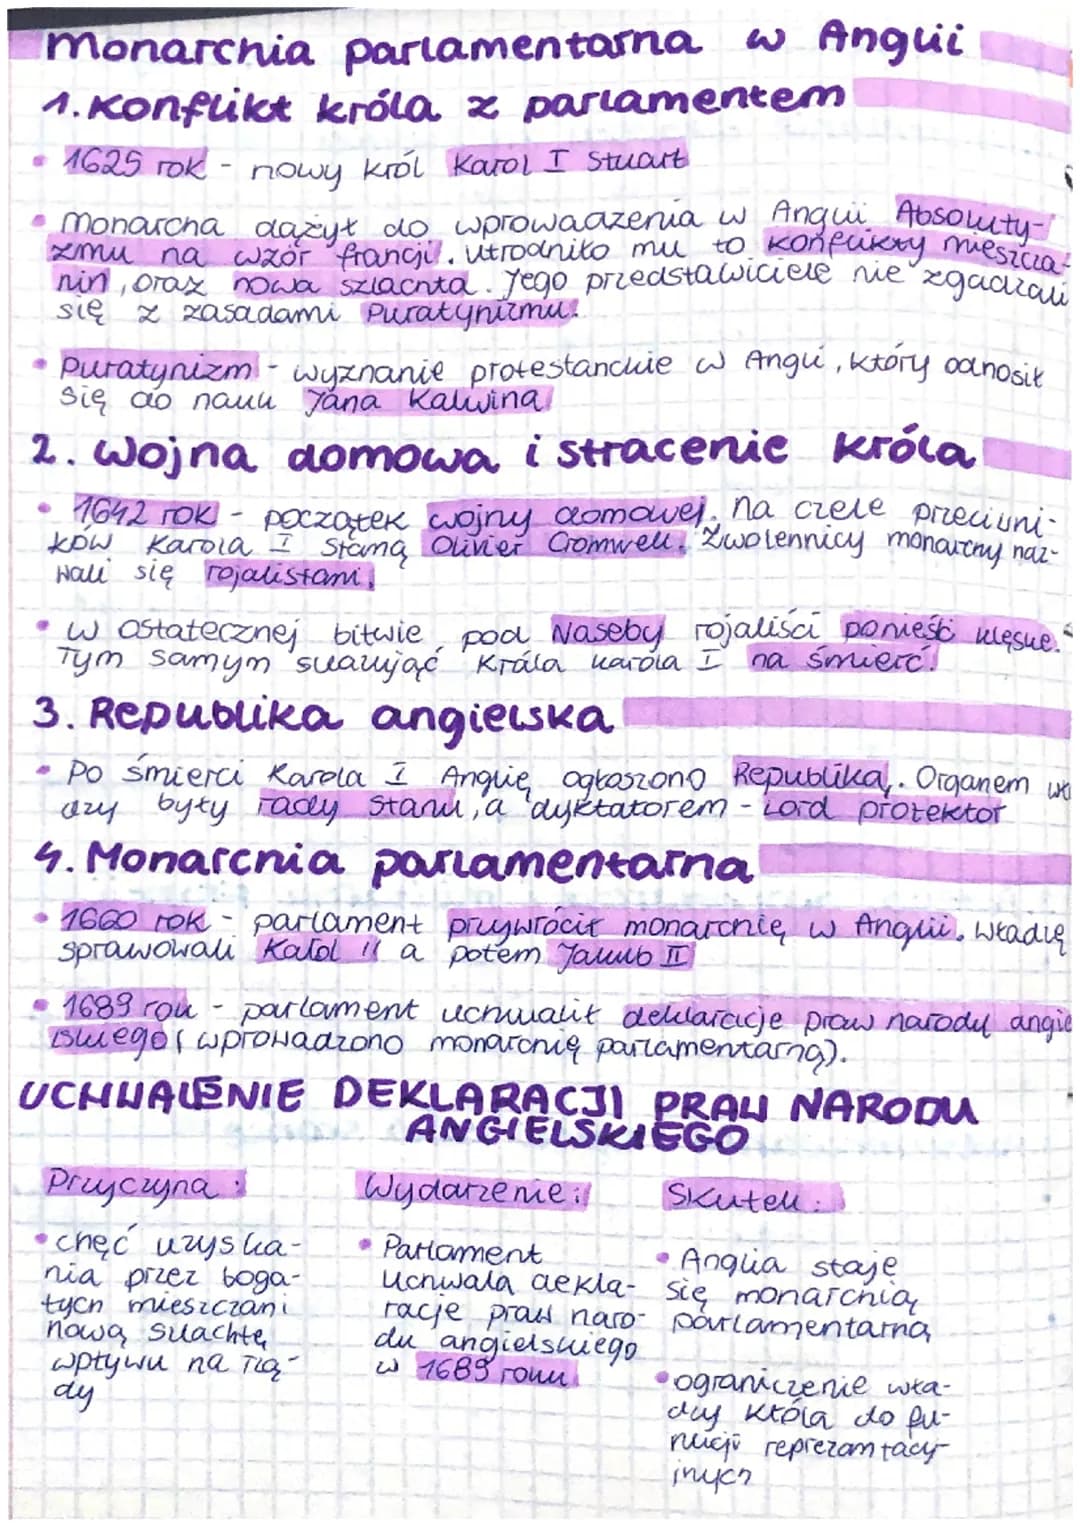 Monarchia parlamentarna w Anglii
1. Konflikt króla z parlamentem
• 1625 rok - nowy król Karol I Stuart
• Monarcha dążył do wprowadzenia w Anglii Absoluty-
zmu na wzór francji. Utrodniło mu to konflikty mieszcza-
nin, oraz nowa szlachta. Jego przedstawiciele nie zgadzali
się z zasadami Puratynizmu.
• Puratynizm - wyznanie protestanckie w Angli, który odnosił
się do nauk Jana Kalwina
2. Wojna domowa i stracenie króla
• 1642 rok - początek wojny domowej. Na czele przeciwni-
ków Karola I Staną Olivier Cromwell. Zwolennicy monarchy naz-
wali się rojalistami.
• W ostatecznej bitwie pod Naseby rojaliści ponieśli klęskę.
Tym samym skazując Króla karola I na śmierć.
3. Republika angielska
• Po śmierci Karola I Anglię ogłoszono Republiką. Organem wła
dzy były rady stanu, a dyktatorem - Lord protektor
4. Monarchia parlamentarna
• 1660 rok - parlament przywrócił monarchię w Anglii. Władzę
sprawowali Karol II a potem Jakub II
• 1689 rok - parlament uchwalił deklaracje praw narodu angie
lskiego (wprowadzono monarchię parlamentarną).
UCHWALENIE DEKLARACJI PRAW NARODU
ANGIELSKIEGO
Przyczyna:
• chęć uzyska-
nia przez boga-
tych mieszczan i
nową szlachtę
wpływu na rzą-
dy
Wydarzenie:
• Parlament
uchwala dekla-
racje praw naro-
du angielskiego
w 1689 roku
Skutek:
• Anglia staje
się monarchią
parlamentarną
• ograniczenie wła-
dzy króla do fu-
nkcji reprezamtacy-
jnych